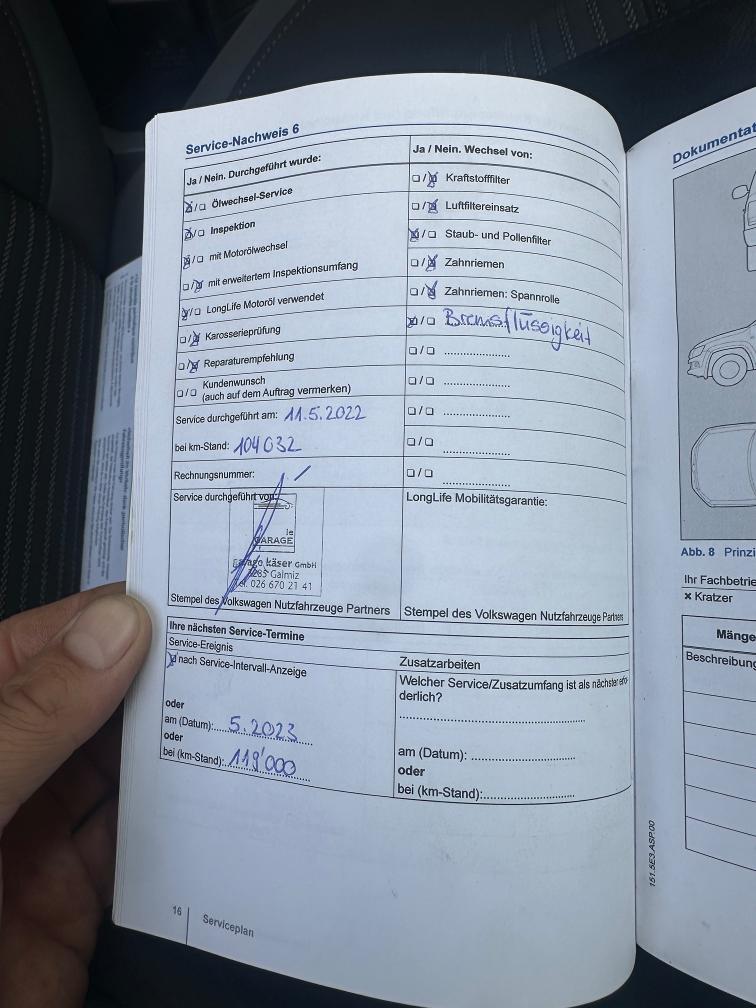 Service-Nachweis 6
Ja / Nein. Durchgeführt wurde:
☒/☐ Ölwechsel-Service
☒/☐ Inspektion
☒/☐ mit Motorölwechsel
☐/☒ mit erweitertem Inspektionsumfang
☒/☐ LongLife Motoröl verwendet
☐/☒ Karosserieprüfung
☐/☒ Reparaturempfehlung
☐/☐ Kundenwunsch
(auch auf dem Auftrag vermerken)
Service durchgeführt am: 11.5.2022
bei km-Stand: 104032
Rechnungsnummer:
Service durchgeführt von:
le
GARAGE
käser GmbH
3285 Galmiz
Tel. 026 670 21 41
Stempel des Volkswagen Nutzfahrzeuge Partners
Ja / Nein. Wechsel von:
☐/☒ Kraftstofffilter
☐/☒ Luftfiltereinsatz
☒/☐ Staub- und Pollenfilter
☐/☒ Zahnriemen
☐/☒ Zahnriemen: Spannrolle
☒/☐ Bremsflüssigkeit
☐/☐ ....................
☐/☐ ....................
☐/☐ ....................
☐/☐ ....................
☐/☐ ....................
LongLife Mobilitätsgarantie:
Stempel des Volkswagen Nutzfahrzeuge Partners
Ihre nächsten Service-Termine
Service-Ereignis
☒ nach Service-Intervall-Anzeige
oder
am (Datum): 5.2023
oder
bei (km-Stand): 119'000
Zusatzarbeiten
Welcher Service/Zusatzumfang ist als nächster erfor-
derlich?
am (Datum):
oder
bei (km-Stand):
16
Serviceplan
151.5E3.ASP.00
Dokumentat
Abb. 8 Prinzi
Ihr Fachbetrie
× Kratzer
Mänge
Beschreibung